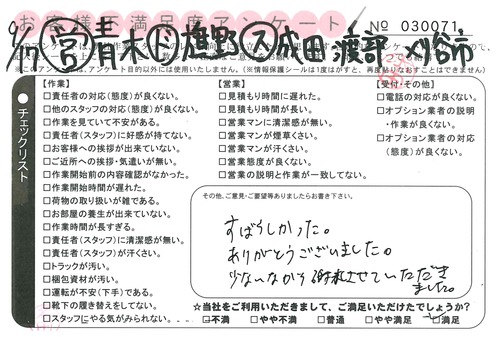 お客様不満足度アンケート
№ 030071
9/17 営 青木 ド 雄野 ス 成田 渡部 刈谷市
本アンケート以外には使用いたしません。(※情報保護シールは1度はがすと、再度貼りなおすことはできません)
チェックリスト
【作業】
□責任者の対応(態度)が良くない。
□他のスタッフの対応(態度)が良くない。
□作業を見ていて不安がある。
□責任者(スタッフ)に好感が持てない。
□お客様への挨拶が出来ていない。
□ご近所への挨拶・気遣いが無い。
□作業開始前の内容確認がなかった。
□作業開始時間が遅れた。
□荷物の取り扱いが雑である。
□お部屋の養生が出来ていない。
□作業時間が長すぎる。
□責任者(スタッフ)に清潔感が無い。
□責任者(スタッフ)が汗くさい。
□トラックが汚い。
□梱包資材が汚い。
□運転が不安(下手)である。
□靴下の履き替えをしてない。
□スタッフにやる気がみられない。
【営業】
□見積もり時間に遅れた。
□見積もり時間が長い。
□営業マンに清潔感が無い。
□営業マンが煙草くさい。
□営業マンが汗くさい。
□営業態度が良くない。
□営業の説明と作業が一致してない。
【受付・その他】
□電話の対応が良くない。
□オプション業者の説明
・作業が良くない。
□オプション業者の対応
(態度)が良くない。
その他、ご意見・ご要望等ありましたらお書き下さい。
すばらしかった。
ありがとうございました。
少ないながら謝礼させていただき
ました。
☆当社をご利用いただきまして、ご満足いただけたでしょうか?
□不満 □やや不満 □普通 □やや満足 □満足